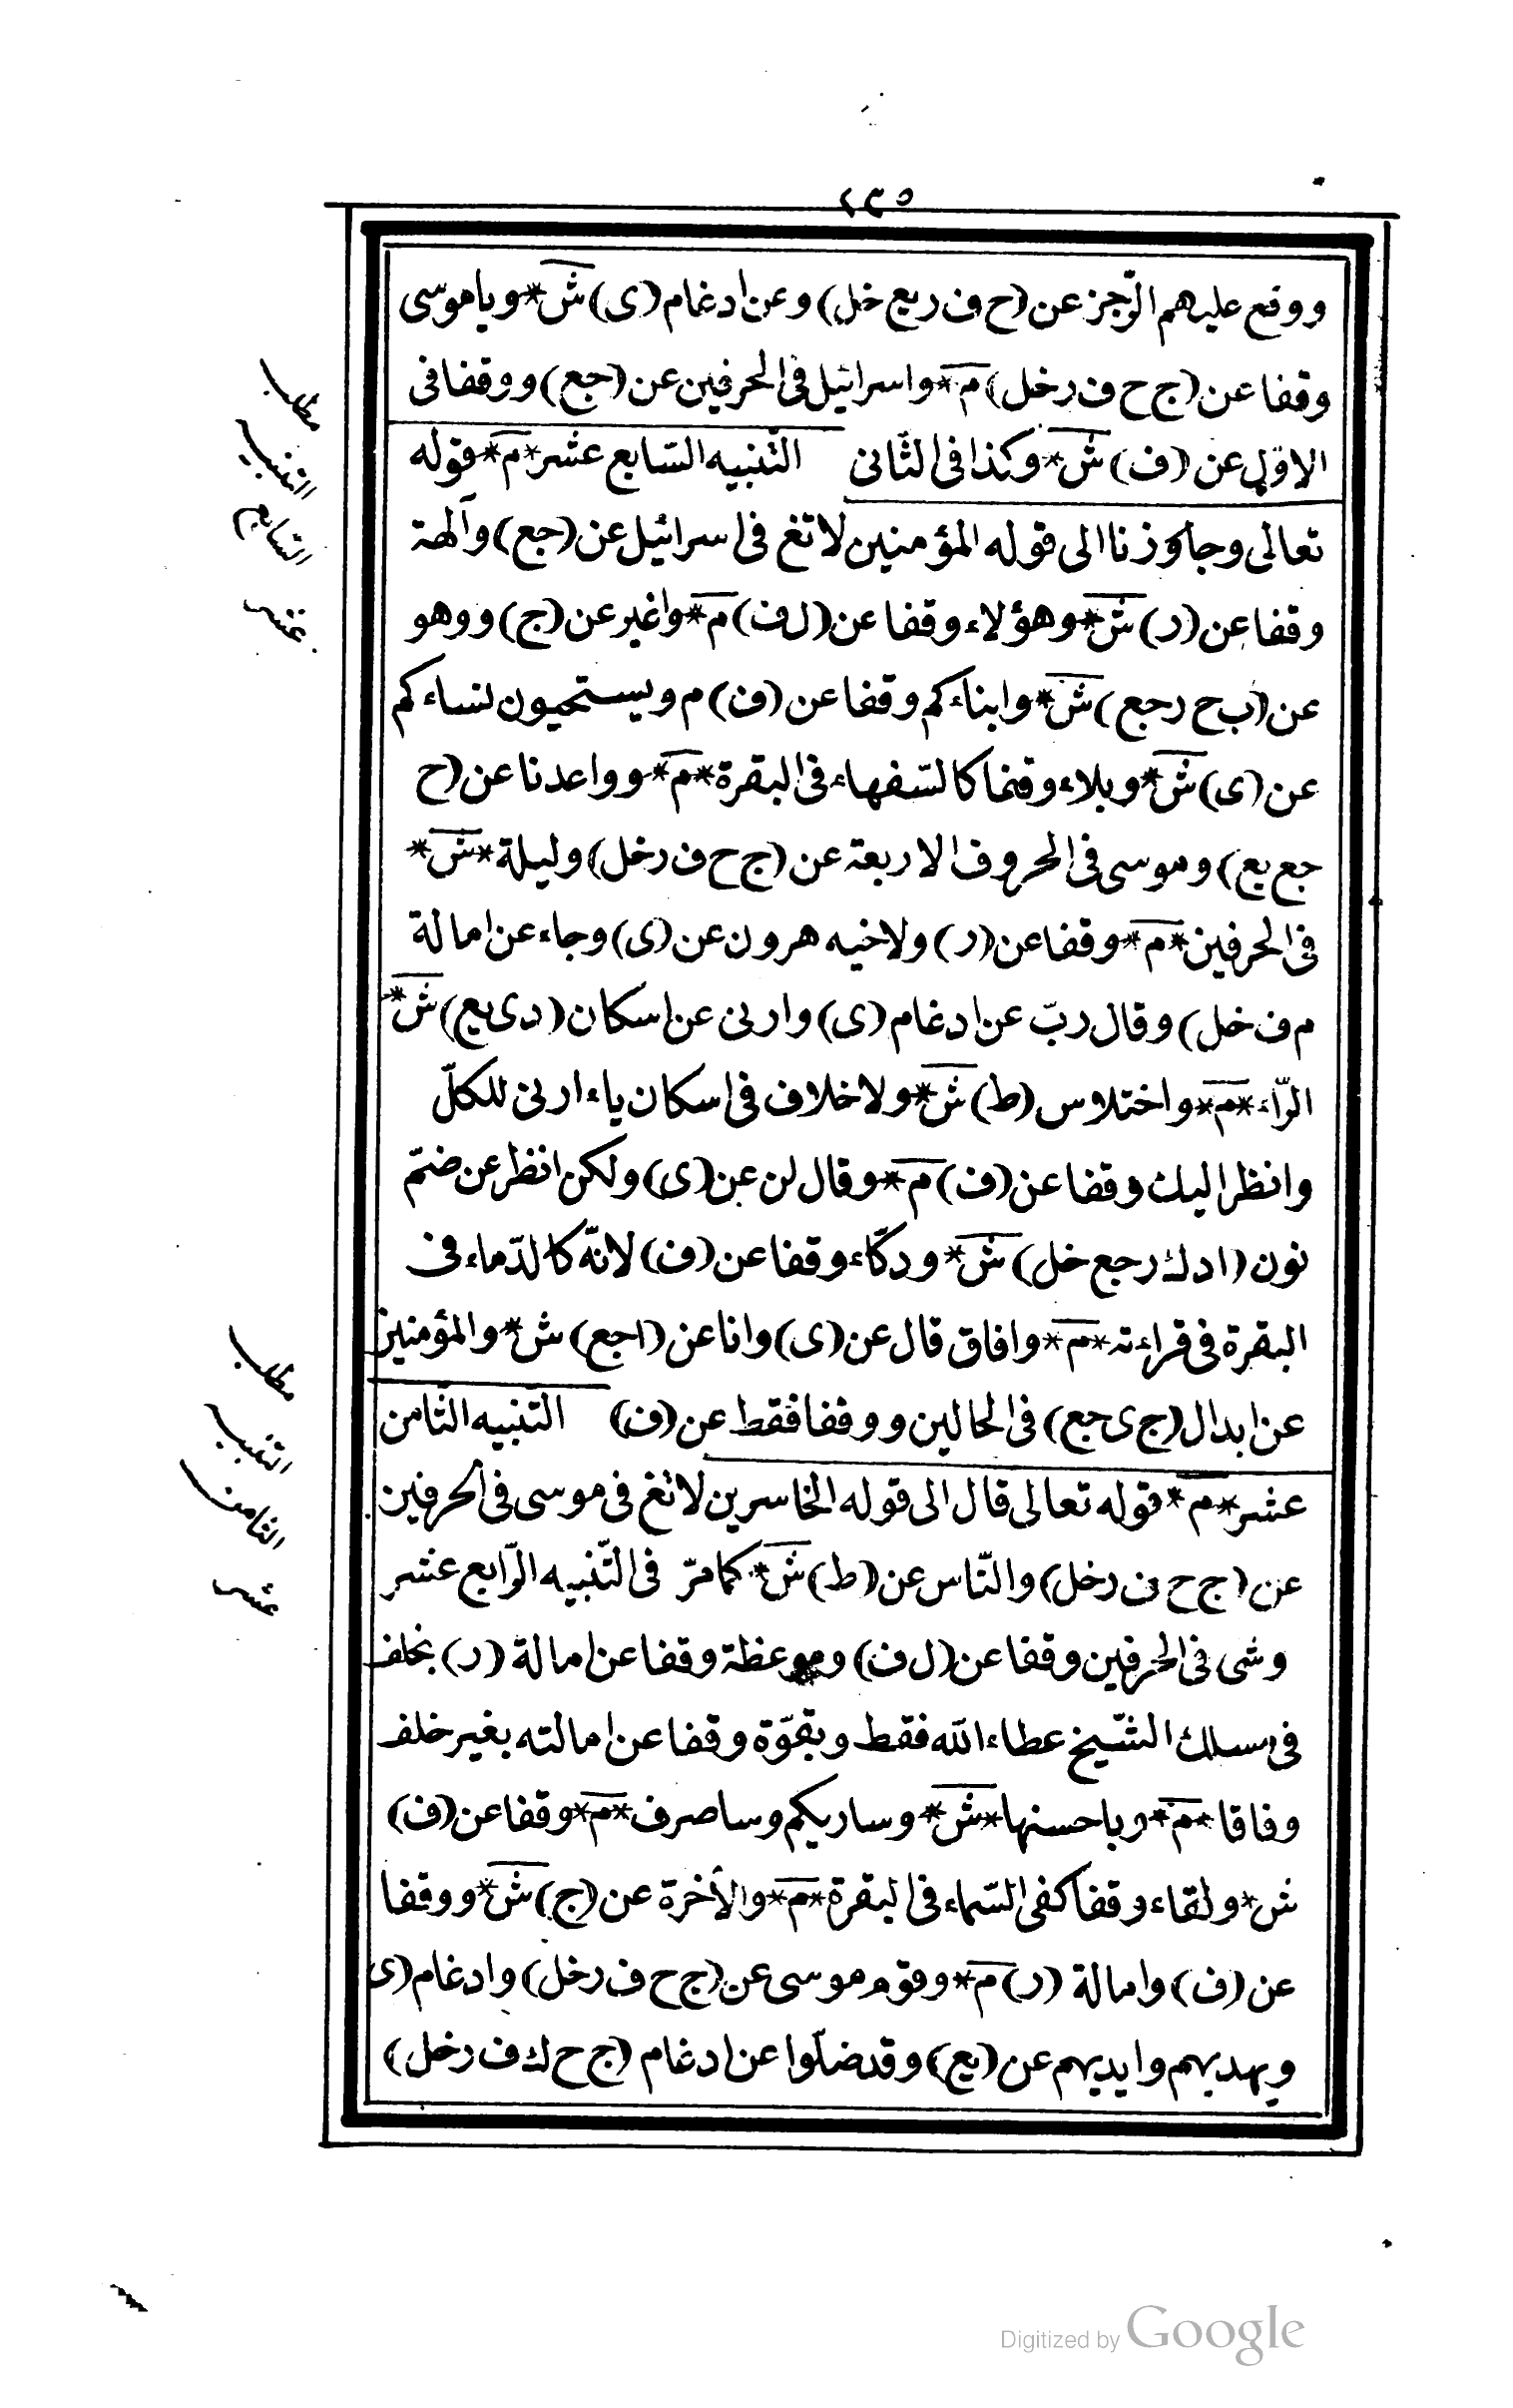 ٢٣٥
ووقع عليهم الرّجز عن (ح ف ربع خل) وعن ادغام (ى) ش * وياموسى
وقفا عن (ج ح ف ر خل) م * واسرائيل فى الحرفين عن (جع) ووقفا فى
الاوّل عن (ف) ش * وكذا فى الثّانى التّنبيه السّابع عشر * م * قوله
تعالى وجاوزنا الى قوله المؤمنين لا تغ فى اسرائيل عن (جع) وآلهة
وقفا عن (ر) ش * وهؤلاء وقفا عن (ل ف) م * واغير عن (ج) ووهو
عن (ب ح ر جع) ش * وابناءكم وقفا عن (ف) م ويستحيون نساءكم
عن (ى) ش * وبلاء وقفا كالسّفهاء فى البقرة * م * وواعدنا عن (ح
جع يع) وموسى فى الحروف الاربعة عن (ج ح ف ر خل) وليلة * ش *
فى الحرفين * م * وقفا عن (ر) ولاخيه هرون عن (ى) وجاء عن امالة
م ف خل) وقال ربّ عن ادغام (ى) وارنى عن اسكان (د ى يع) ش *
الرّاء * م * واختلاس (ط) ش * ولا خلاف فى اسكان ياء ارنى للكلّ
وانظر اليك وقفا عن (ف) م * وقال لن عن (ى) ولكن انظر عن ضمّ
نون (ا د ك ر جع خل) ش * ودكّاء وقفا عن (ف) لانّه كالدّماء فى
البقرة فى قراءته * م * وافاق قال عن (ى) وانا عن (ا جع) ش * والمؤمنين
عن ابدال (ج ى جع) فى الحالين ووقفا فقط عن (ف) التّنبيه الثّامن
عشر * م * قوله تعالى قال الى قوله الخاسرين لا تغ فى موسى فى الحرفين
عن (ج ح ف ر خل) والنّاس عن (ط) ش * كما مرّ فى التّنبيه الرّابع عشر
وشى فى الحرفين وقفا عن (ل ف) وموعظة وقفا عن امالة (ر) بخلف
فى مسلك الشّيخ عطاء الله فقط وبقوّة وقفا عن امالته بغير خلف
وفاقا * م * وباحسنها * ش * وساريكم وساصرف * م * وقفا عن (ف)
ش * ولقاء وقفا كفى السّماء فى البقرة * م * والأخرة عن (ج) ش * ووقفا
عن (ف) وامالة (ر) م * وقوم موسى عن (ج ح ف ر خل) وادغام (ى
ويهديهم وايديهم عن (يع) وقد ضلّوا عن ادغام (ج ح ك ف ر خل)
مطلب
التنبيه
السّابع
عشر
مطلب
التنبيه
الثّامن
عشر
Digitized by Google